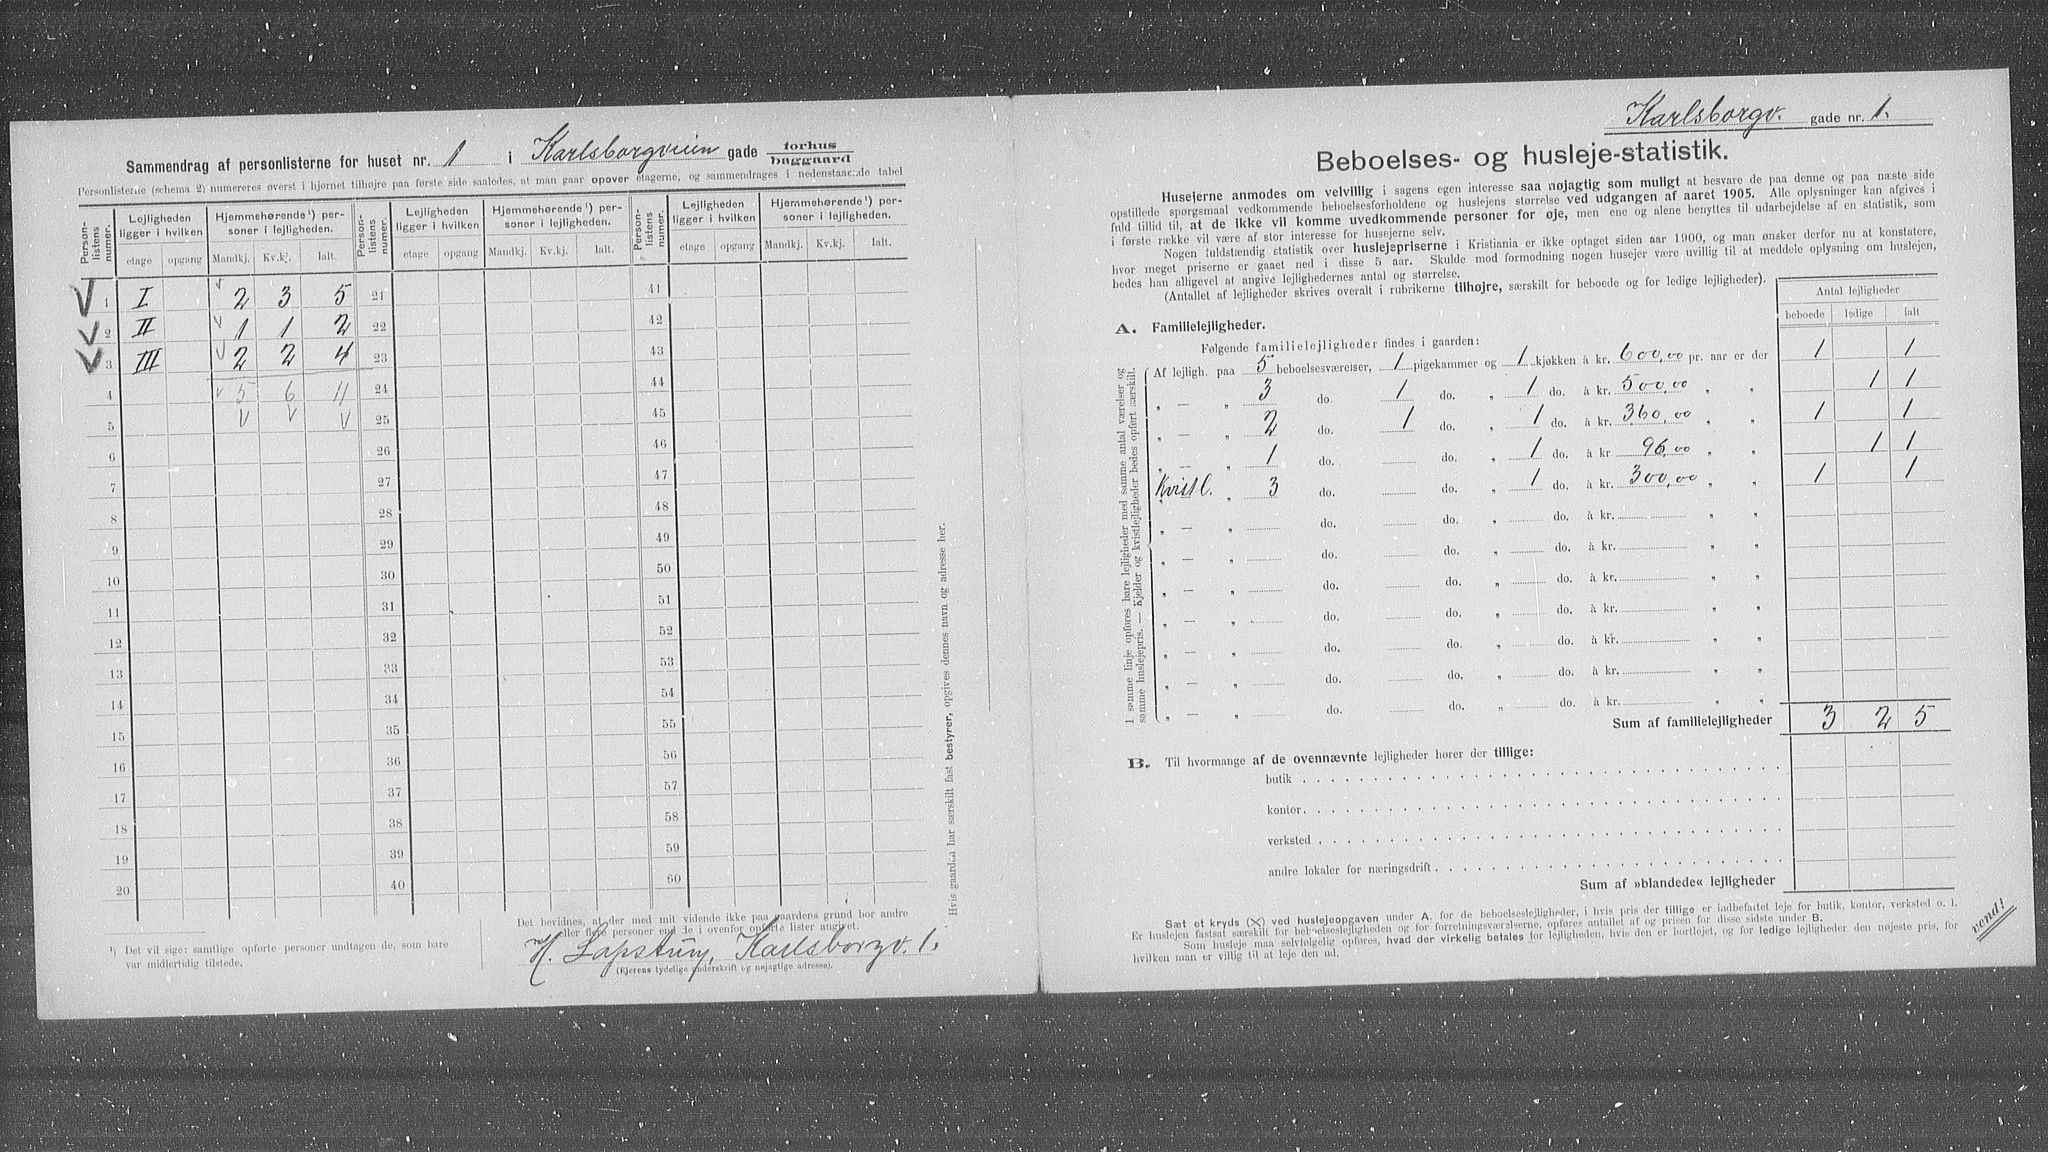 Sammendrag af personlisterne for huset nr. 1 i Karlsborgveien gade forhus baggaard
Personlisterne (schema 2) numereres øverst i hjørnet tilhøjre paa første side saaledes, at man gaar opover etagerne, og sammendrages i nedenstaaende tabel
Person-listens numer. Lejligheden ligger i hvilken Hjemmehørende¹) personer i lejligheden. Person-listens numer. Lejligheden ligger i hvilken Hjemmehørende¹) personer i lejligheden. Person-listens numer. Lejligheden ligger i hvilken Hjemmehørende¹) personer i lejligheden.
etage opgang Mandkj. Kv.kj. Ialt. etage opgang Mandkj. Kv.kj. Ialt. etage opgang Mandkj. Kv.kj. Ialt.
1 I 2 3 5 21 41
2 II 1 1 2 22 42
3 III 2 2 4 23 43
4 5 6 11 24 44
5 25 45
6 26 46
7 27 47
8 28 48
9 29 49
10 30 50
11 31 51
12 32 52
13 33 53
14 34 54
15 35 55
16 36 56
17 37 57
18 38 58
19 39 59
20 40 60
¹) Det vil sige: samtlige opførte personer undtagen de, som bare
var midlertidig tilstede.
Det bevidnes, at der med mit vidende ikke paa gaardens grund bor andre
eller flere personer end de i ovenfor opførte lister angivet.
H. Lapstuen, Karlsborgv. 1.
(Ejerens tydelige underskrift og nøjagtige adresse).
Hvis gaarden har særskilt fast bestyrer, opgives dennes navn og adresse her.
Karlsborgv. gade nr. 1.
Beboelses- og husleje-statistik.
Husejerne anmodes om velvillig i sagens egen interesse saa nøjagtig som muligt at besvare de paa denne og paa næste side
opstillede spørgsmaal vedkommende beboelsesforholdene og huslejens størrelse ved udgangen af aaret 1905. Alle oplysninger kan afgives i
fuld tillid til, at de ikke vil komme uvedkommende personer for øje, men ene og alene benyttes til udarbejdelse af en statistik, som
i første række vil være af stor interesse for husejerne selv.
Nogen fuldstændig statistik over huslejepriserne i Kristiania er ikke optaget siden aar 1900, og man ønsker derfor nu at konstatere,
hvor meget priserne er gaaet ned i disse 5 aar. Skulde mod formodning nogen husejer være uvillig til at meddele oplysning om huslejen,
bedes han alligevel at angive lejlighedernes antal og størrelse.
(Antallet af lejligheder skrives overalt i rubrikerne tilhøjre, særskilt for beboede og for ledige lejligheder).
Antal lejligheder
beboede ledige ialt
A. Familielejligheder.
Følgende familielejligheder findes i gaarden:
I samme linje opføres bare lejligheder med samme antal værelser og
samme huslejepris. — Kjelder og kvistlejligheder bedes opført særskilt.
Af lejligh. paa 5 beboelsesværelser, 1 pigekammer og 1 kjøkken à kr. 600,00 pr. aar er der 1 1
„ — „ 3 do. 1 do. „ 1 do. à kr. 500,00 „ „ 1 1
„ — „ 2 do. 1 do. „ 1 do. à kr. 360,00 „ „ 1 1
„ — „ 1 do. do. „ 1 do. à kr 96,00 „ „ 1 1
Kvistl. „ 3 do. do. „ 1 do. à kr. 300,00 „ „ 1 1
„ — „ do. do. „ do. à kr. „ „
„ — „ do. do. „ do. à kr. „ „
„ — „ do. do. „ do. à kr. „ „
„ — „ do. do. „ do. à kr. „ „
„ — „ do. do. „ do. à kr. „ „
„ — „ do. do. „ do. à kr. „ „
„ — „ do. do. „ do. à kr. „ „
Sum af familielejligheder 3 2 5
B. Til hvormange af de ovennævnte lejligheder hører der tillige:
butik
kontor
verksted
andre lokaler for næringsdrift
Sum af »blandede« lejligheder
Sæt et kryds (×) ved huslejeopgaven under A. for de beboelseslejligheder, i hvis pris der tillige er indbefattet leje for butik, kontor, verksted o. l.
Er huslejen fastsat særskilt for beboelseslejligheden og for forretningsværelserne, opføres antallet af og prisen for disse sidste under B.
Som husleje maa selvfølgelig opføres, hvad der virkelig betales for lejligheden, hvis den er bortlejet, og for ledige lejligheder den nøjeste pris, for
hvilken man er villig til at leje den ud.
vend!